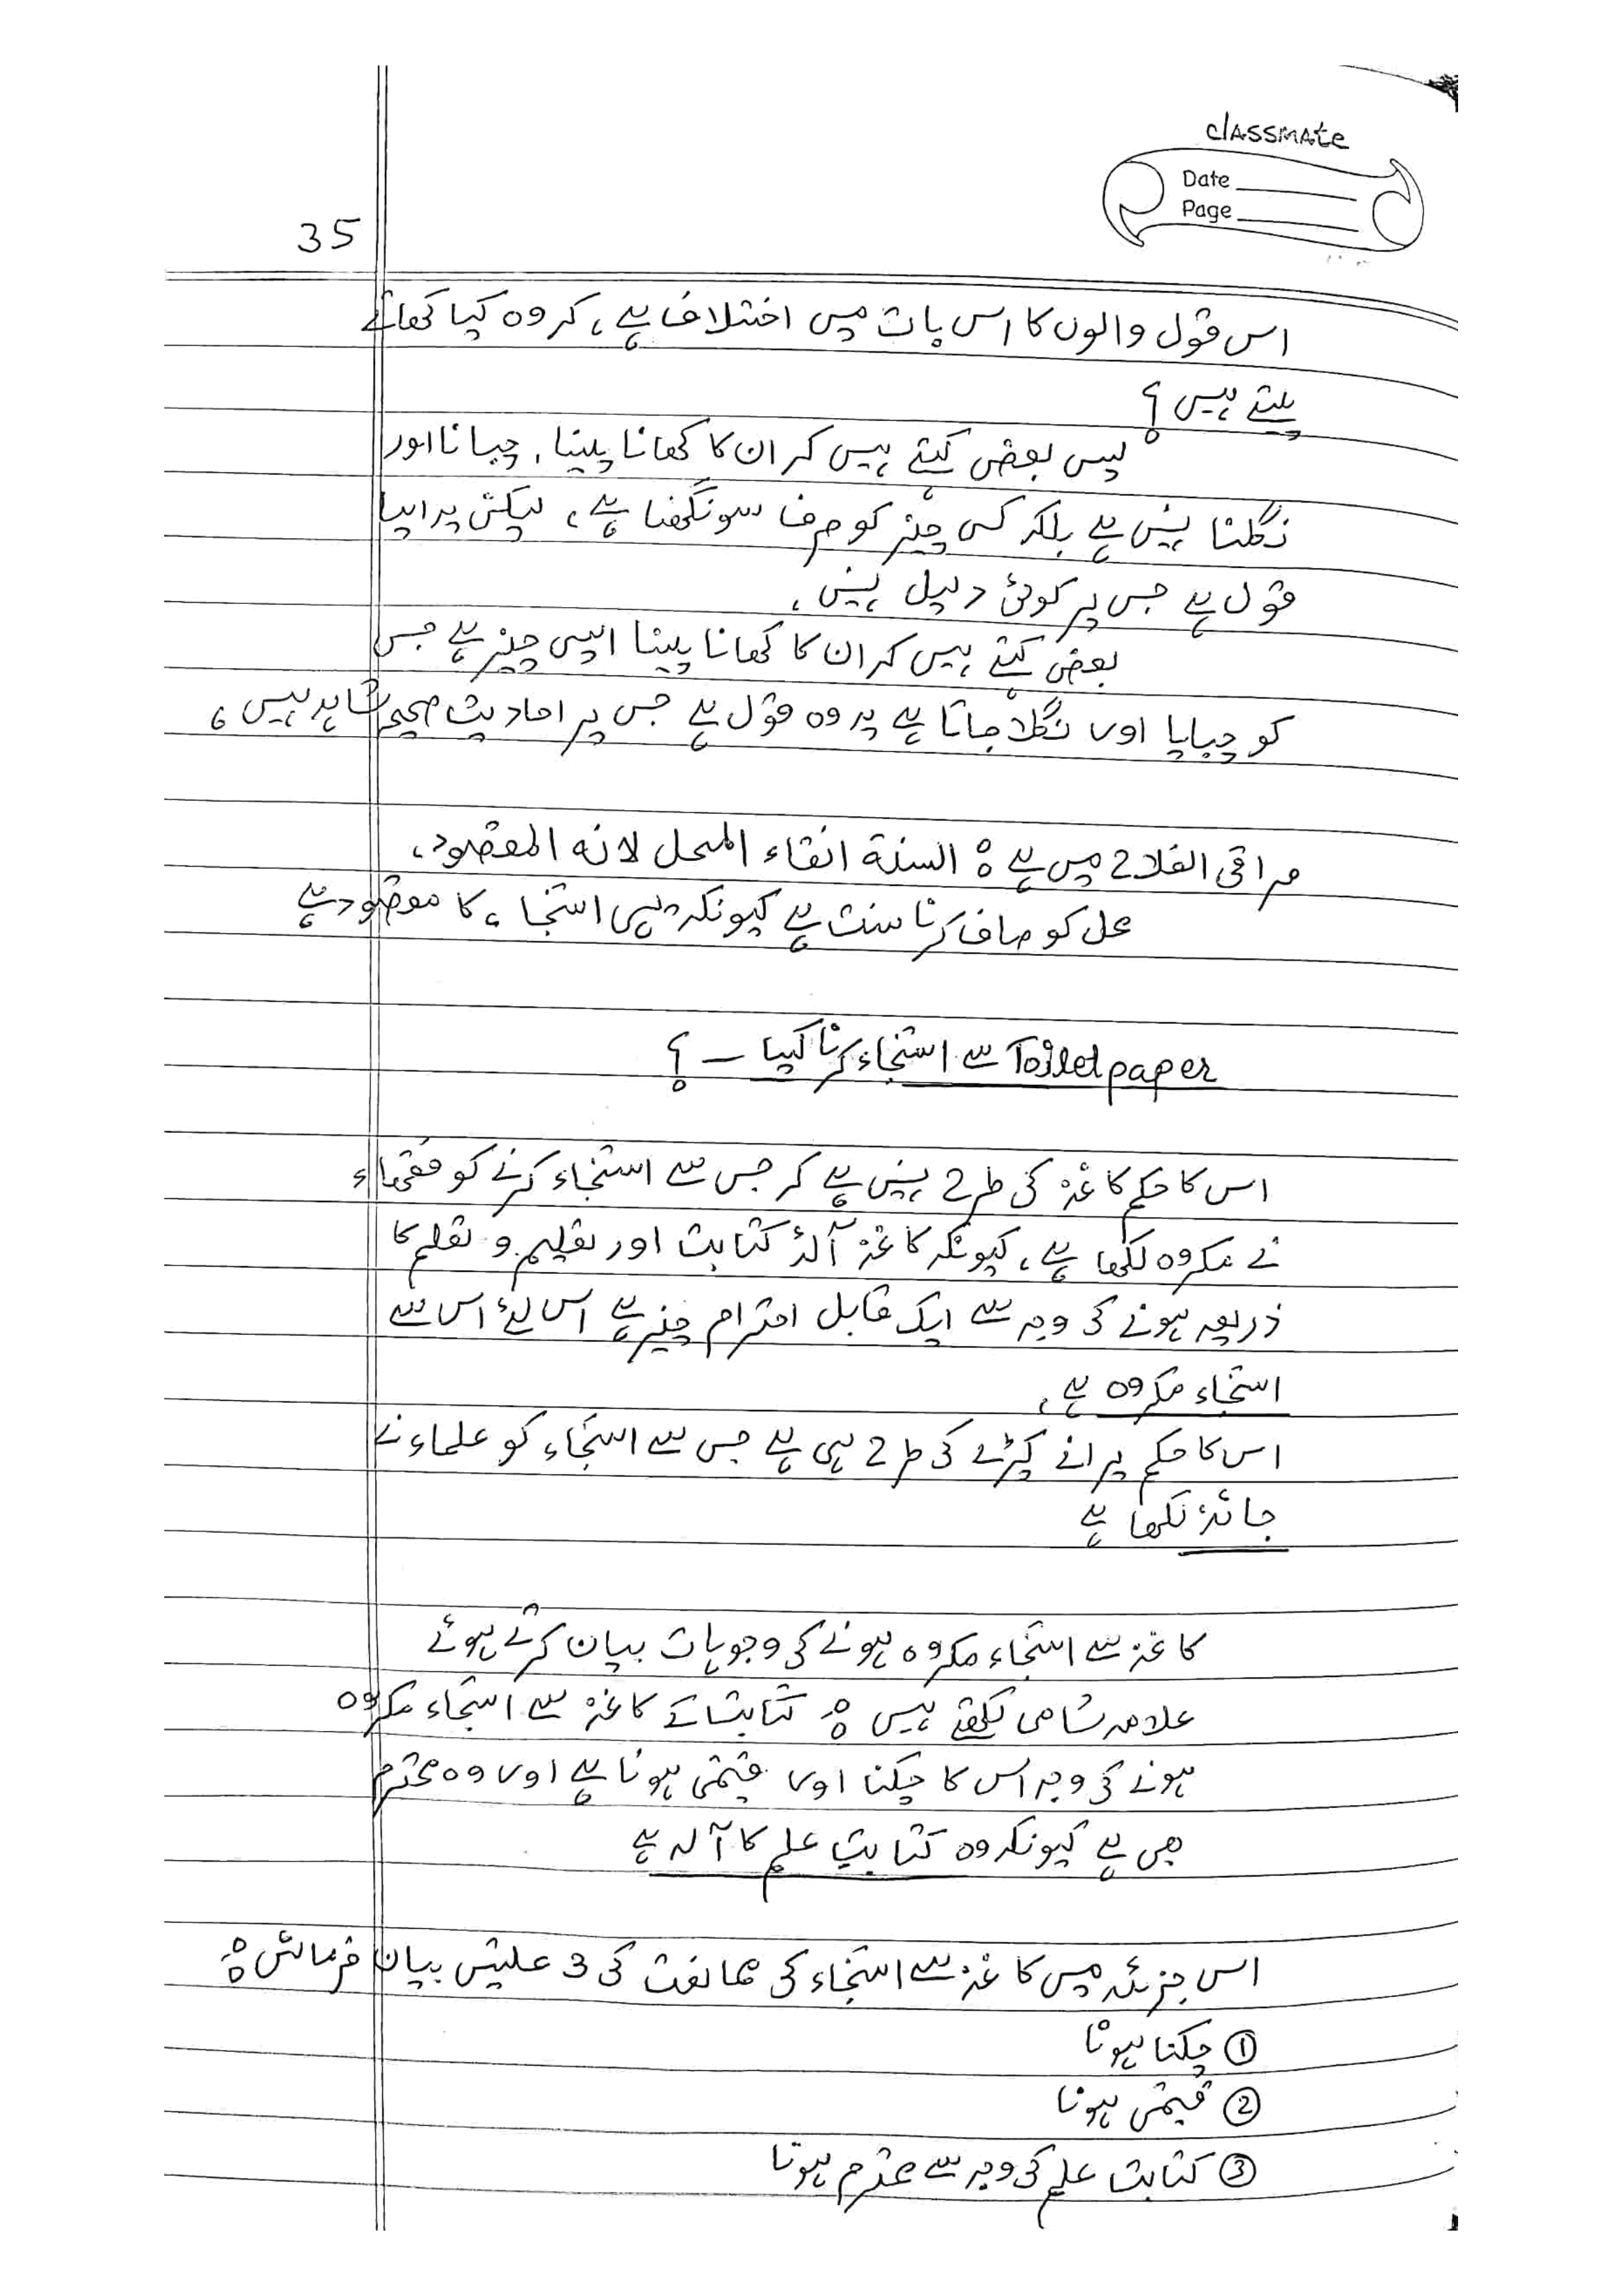 classmate
Date
Page
35
اس قول والوں کا اس بات میں اختلاف ہے، کہ وہ کیا کھاتے
پیتے ہیں؟
پس بعض کہتے ہیں کہ ان کا کھانا پینا، چبانا اور
نگلنا نہیں ہے بلکہ کسی چیز کو صرف سونگھنا ہے، لیکن یہ ایسا
قول ہے جس پر کوئی دلیل نہیں،
بعض کہتے ہیں کہ ان کا کھانا پینا ایسی چیز ہے جس
کو چبایا اور نگلا جاتا ہے یہ وہ قول ہے جس پر احادیث صحیحہ شاہد ہیں،
مراقی الفلاح میں ہے: السنة انقاء المحل لانه المقصود،
محل کو صاف کرنا سنت ہے کیونکہ یہی استنجاء کا مقصود ہے
Toilet paper سے استنجاء کرنا کیسا – ؟
اس کا حکم کاغذ کی طرح نہیں ہے کہ جس سے استنجاء کرنے کو فقہاء
نے مکروہ لکھا ہے، کیونکہ کاغذ آلۂ کتابت اور تعلیم و تعلم کا
ذریعہ ہونے کی وجہ سے ایک قابل احترام چیز ہے اس لئے اس سے
استنجاء مکروہ ہے،
اس کا حکم پرانے کپڑے کی طرح ہی ہے جس سے استنجاء کو علماء نے
جائز لکھا ہے
کاغذ سے استنجاء مکروہ ہونے کی وجوہات بیان کرتے ہوئے
علامہ شامی لکھتے ہیں: کتابت کے کاغذ سے استنجاء مکروہ
ہونے کی وجہ اس کا چکنا اور قیمتی ہونا ہے اور وہ محترم
بھی ہے کیونکہ وہ کتابتِ علم کا آلہ ہے
اس جزئیہ میں کاغذ سے استنجاء کی ممانعت کی 3 علتیں بیان فرمائیں:
① چکنا ہونا
② قیمتی ہونا
③ کتابت علم کی وجہ سے محترم ہونا